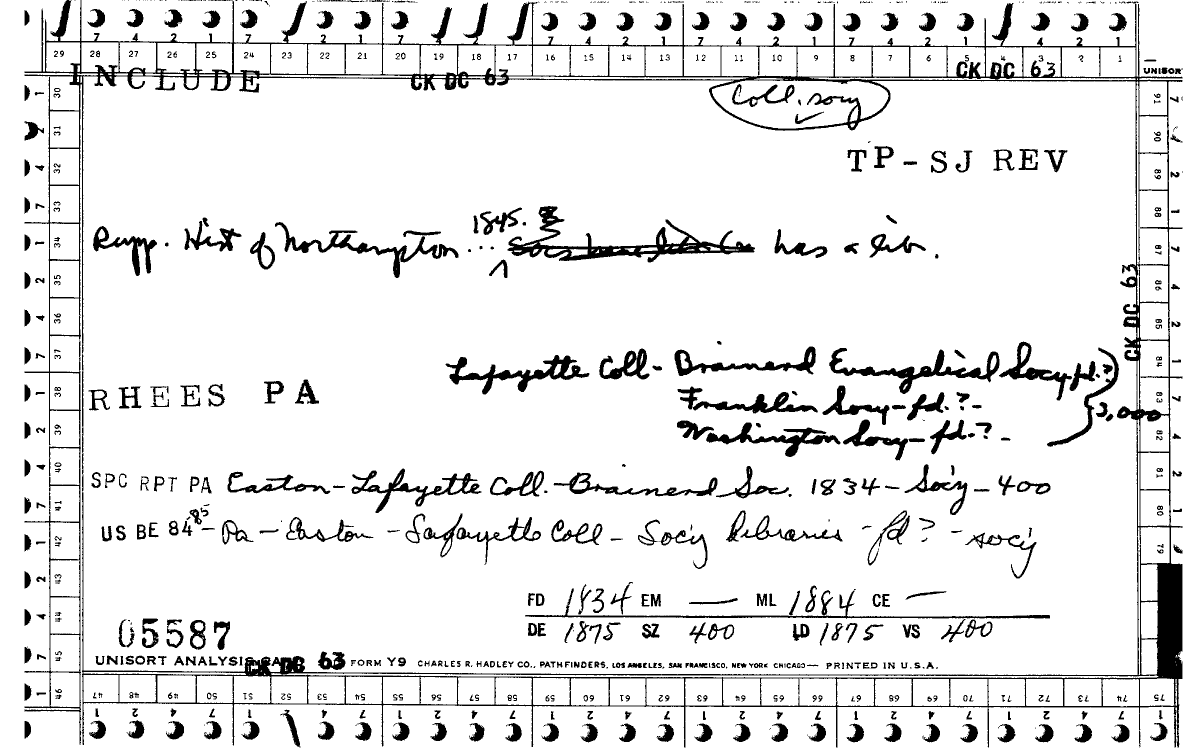 29 28 27 26 25 24 23 22 21 20 19 18 17 16 15 14 13 12 11 10 9 8 7 6 5 4 3 2 1
INCLUDE CK DC 63 CK DC 63 UNISORT
Coll. socy
TP-SJ REV
1845.
Rupp. Hist of Northampton ... has a lib.
CK DC 63
Lafayette Coll - Brainerd Evangelical Socy-fd.?
RHEES PA Franklin Socy-fd.?-
3,000
Washington Socy-fd.?-
SPC RPT PA Easton-Lafayette Coll.-Brainerd Soc. 1834-Soc'y-400
US BE 84-85-Pa-Easton-Lafayette Coll-Soc'y Libraries-fd?-soc'y
FD 1834 EM — ML 1884 CE —
DE 1875 SZ 400 LD 1875 VS 400
05587
UNISORT ANALYSIS CARD CK DC 63 FORM Y9 CHARLES R. HADLEY CO., PATHFINDERS, LOS ANGELES, SAN FRANCISCO, NEW YORK CHICAGO— PRINTED IN U.S.A.
47 48 49 50 51 52 53 54 55 56 57 58 59 60 61 62 63 64 65 66 67 68 69 70 71 72 73 74 75